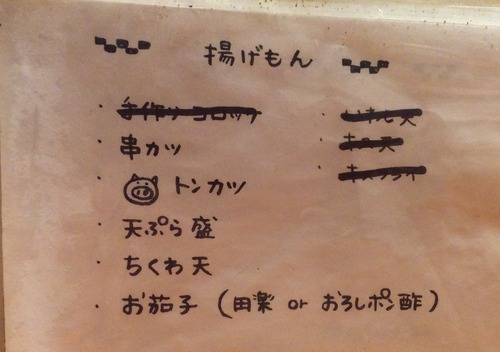 揚げもん
手作りコロッケ
串カツ
トンカツ
天ぷら盛
ちくわ天
お茄子 (田楽 or おろしポン酢)
キス天
キスフライ